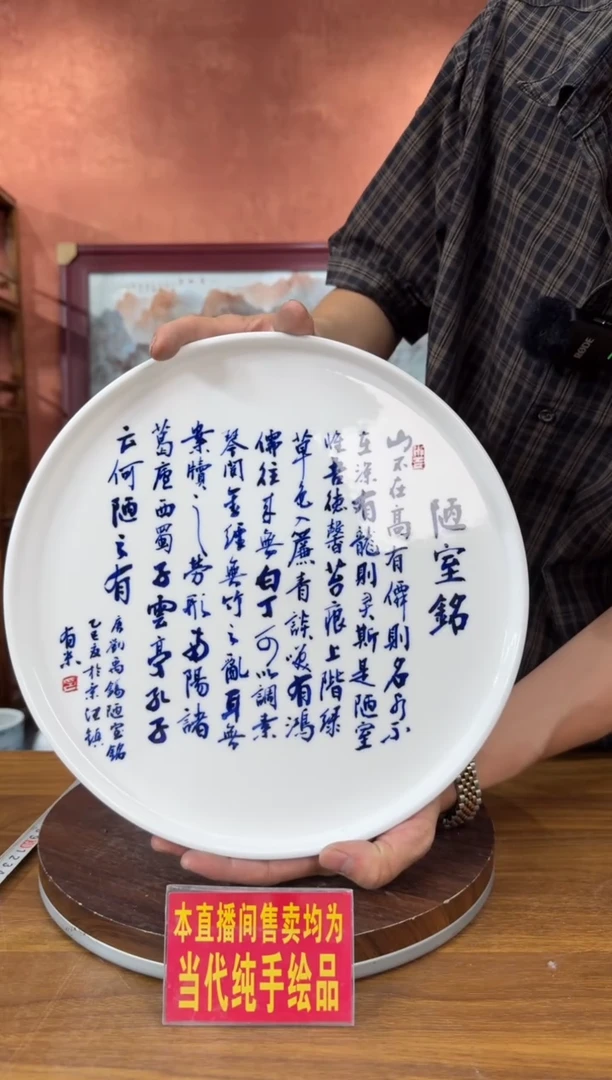 陋室銘
山不在高有僊則名水不
在深有龍則灵斯是陋室
惟吾德馨苔痕上階緑
草色入簾青談笑有鴻
儒往来無白丁可以調素
琴閲金經無竹之亂耳無
案牘之勞形南陽諸
葛廬西蜀子雲亭孔子
云何陋之有
唐劉禹錫陋室銘
乙巳夏於鎮
本直播间售卖均为
当代纯手绘品
RODE